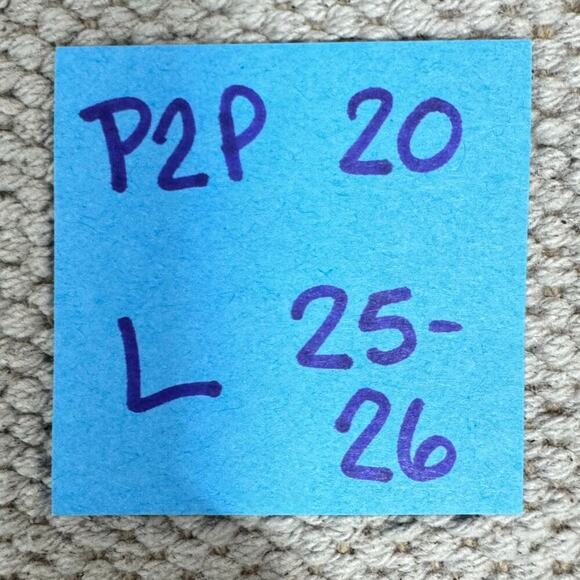 P2P 20
L 25-
26